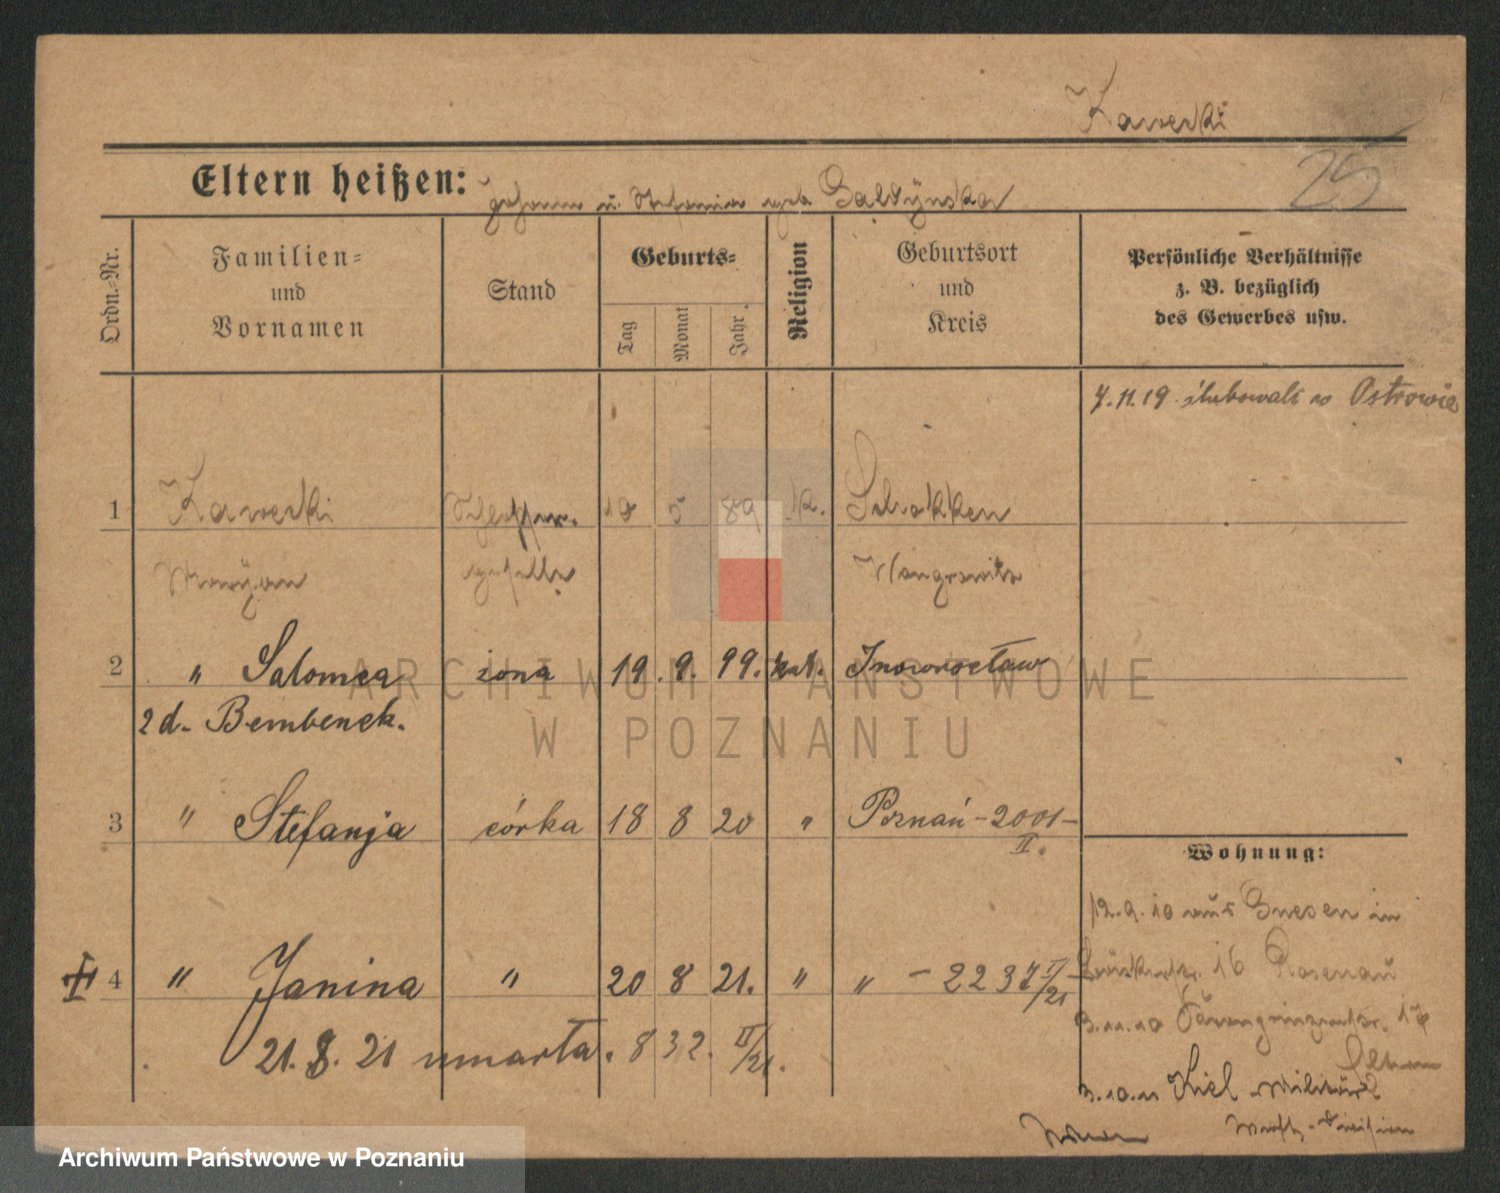 Kawecki
25
Eltern heißen: Johann u. Stefania geb. Galdynska
Ordn.=Nr.
Familien=
und
Vornamen
Stand
Geburts=
Tag
Monat
Jahr
Religion
Geburtsort
und
Kreis
Persönliche Verhältnisse
z. B. bezüglich
des Gewerbes usw.
7.11.19 ślubowali w Ostrowie
1 Kawecki Schlosser. 18 5 89 k. Schokken
Maryan geselle Wongrowitz
2 " Salomea żona 19. 9. 99. kat. Inowrocław
z d. Bembenek.
3 " Stefanja córka 18 8 20 " Poznań - 2001 -
II.
4 " Janina " 20 8 21. " " - 2237 II/21
21. 8. 21 umarła. 832. II/21.
Wohnung:
12.9.10 aus Gnesen in
16 Posenau
3.11.10 17
Eltern
3.10.11 Kiel Militär
ARCHIWUM PAŃSTWOWE
W POZNANIU
Archiwum Państwowe w Poznaniu